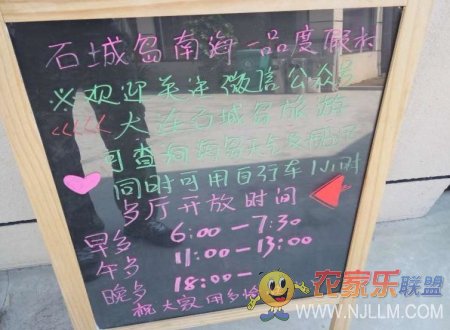 石城岛南海一品度假村
※欢迎关注微信公众号
<<<<< 大连石城岛旅游
可查询海岛天气及
同时可用自行车1小时
歺厅开放时间
早歺 6:00-7:30
午歺 11:00-13:00
晚歺 18:00-
祝大家用歺愉
农家乐联盟
WWW.NJLLM.COM